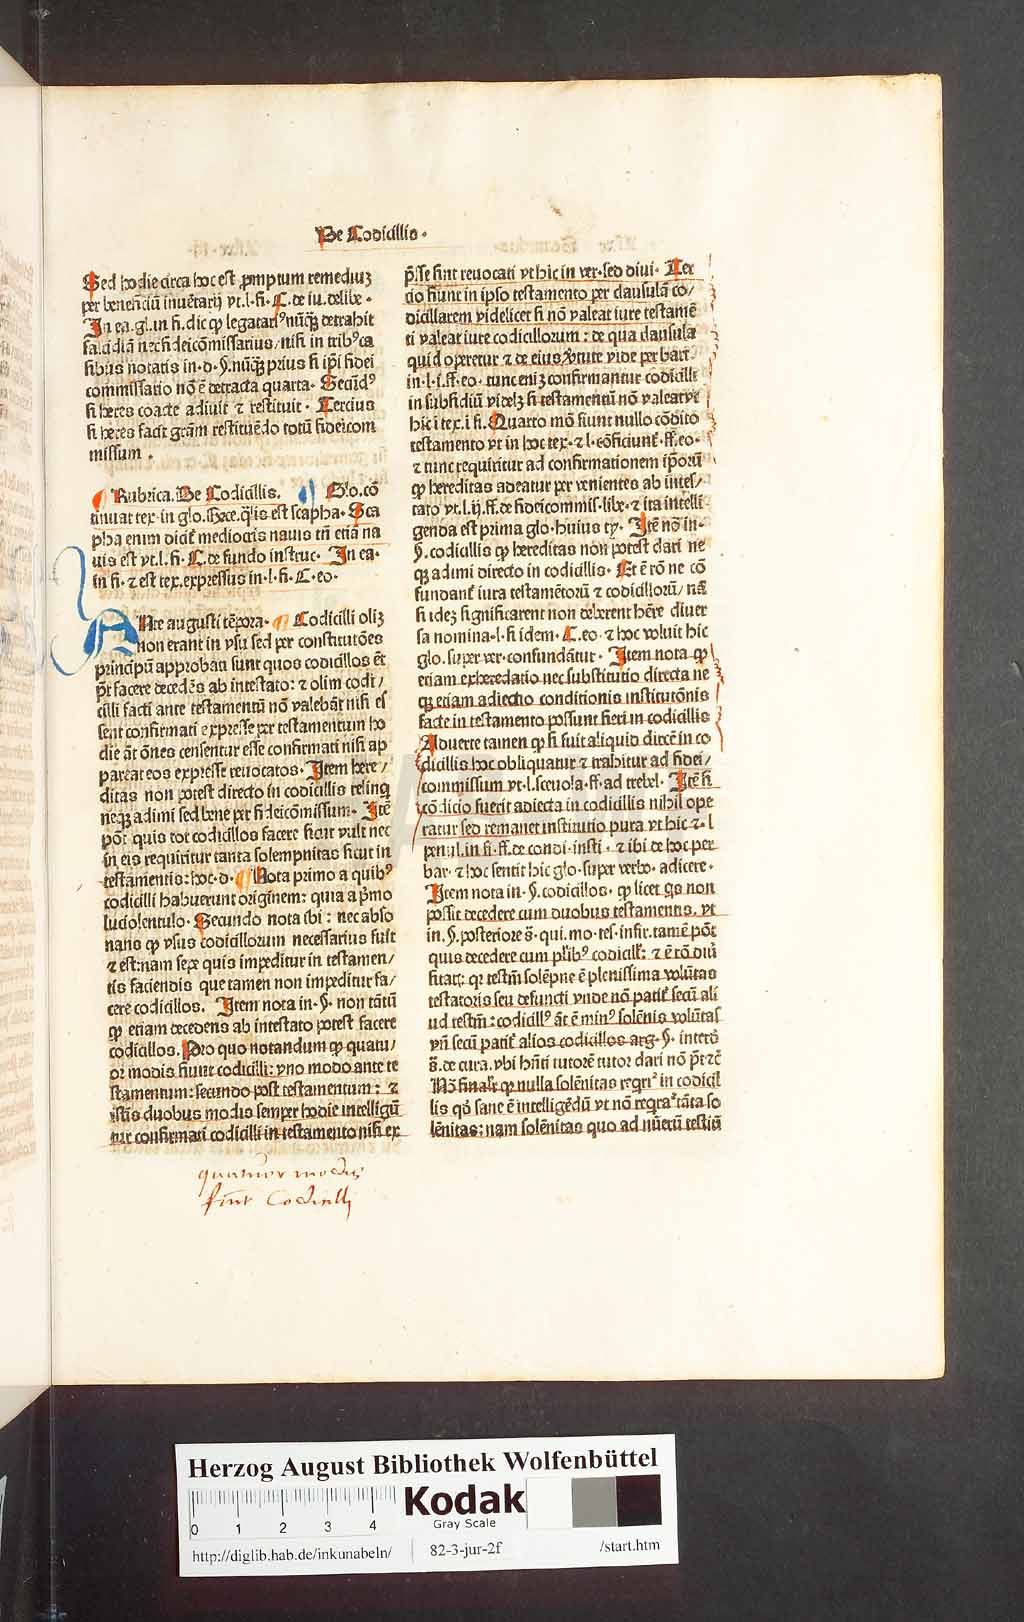 De Codicillis.
Sed hodie circa hoc est promptum remediuʒ
per beneficiū inuētarij vt.l.fi.C.de iu.delibe.
In ea.gl.in fi.dic ꝙ legatariꝰ nūqʒ detrahit
falcidiā nec fideicōmissarius/nisi in tribꝰ ca
sibus notatis in.d.§.nūqʒ prius si ip̄i fidei
commissario nō ē detracta quarta. Secūdꝰ
si heres coacte adiuit ⁊ restituit. Tercius
si heres facit grām restituēdo totū fideicom
missum.
Rubrica. De Codicillis. Glo.cō
tinuat tex.in glo. Hece.q̄lis est scapha. Sca
pha enim dicit̄ mediocris nauis tn̄ etiā na
uis est vt.l.fi.C.de fundo instruc. In ea.
in fi.⁊ est tex.expressus in.l.fi.C.eo.
ANte augusti tēpora. Codicilli oliʒ
non erant in vsu sed per constitutōes
principū approbati sunt quos codicillos ēt
pn̄t facere decedēs ab intestato: ⁊ olim codi/
cilli facti ante testamentū nō valebāt nisi es
sent confirmati expresse per testamentum ho
die āt ōnes censentur esse confirmati nisi ap
pareat eos expresse reuocatos. Item here/
ditas non potest directo in codicillis relinq
neqʒ adimi sed bene per fideicōmissum. Itē
pōt quis tot codicillos facere sicut vult nec
in eis requiritur tanta solempnitas sicut in
testamentis: hoc.d. Nota primo a quibꝰ
codicilli habuerunt originem: quia a p̄mo
lucio lentulo. Secundo nota ibi: nec abso
nans ꝙ vsus codicillorum necessarius fuit
⁊ est: nam sepe quis impeditur in testamen/
tis faciendis que tamen non impeditur fa/
cere codicillos. Item nota in.§.non tātū
ꝙ etiam decedens ab intestato potest facere
codicillos. Pro quo notandum ꝙ quatu/
or modis fiunt codicilli: vno modo ante te
stamentum: secundo post testamentum: ⁊
istis duobus modis semper hodie intelligū
tur confirmati codicilli in testamento nisi ex
p̄sse sint reuocati vt hic in ver.sed diui. Ter
cio fiunt in ipso testamento per clausulā co/
dicillarem videlicet si nō valeat iure testamē
ti valeat iure codicillorum: de qua clausula
quid operetur ⁊ de eius v̓tute vide per bart.
in.l.i.ff.eo.tunc eniʒ confirmantur codicilli
in subsidiū videlʒ si testamentū nō valeat vt
hic i tex.i fi. Quarto mō fiunt nullo cōdito
testamento vt in hoc tex.⁊ l.cōficiunt̄.ff.eo.
⁊ tunc requiritur ad confirmationem ip̄orū
ꝙ hereditas adeatur per venientes ab intes/
tato vt.l.ij.ff.de fideicommis.libe.⁊ ita intelli
genda est prima glo.huius ti. Itē nō in.
§.codicillis ꝙ hereditas non potest dari ne
qʒ adimi directo in codicillis. Et ē rō ne cō
fundant̄ iura testamētorū ⁊ codicillorū/ nā
si ideʒ significarent non deberent hēre diuer
sa nomina.l.si idem.C.eo.⁊ hoc voluit hic
glo.super ver.confundātur. Item nota ꝙ
etiam exheredatio nec substitutio directa ne
qʒ etiam adiectio conditionis institutōnis
facte in testamento possunt fieri in codicillis
Aduerte tamen ꝙ si fuit aliquid directē in co
dicillis hoc obliquatur ⁊ trahitur ad fidei/
commissum vt.l.sceuola.ff.ad trebel. Itē si
cōdicio fuerit adiecta in codicillis nihil ope
ratur sed remanet institutio pura vt hic ⁊.l
penul.in fi.ff.de condi.insti.⁊ ibi de hoc per
bar.⁊ hoc sentit hic glo.super verbo.adicere.
Item nota in.§.codicillos.ꝙ licet qs non
possit decedere cum duobus testamentis.vt
in.§.posteriore s̄.qui.mo.tes.infir.tamē pōt
quis decedere cum plibꝰ codicill̄: ⁊ ē rō diu̓
sitatꝭ: qꝛ testm̄ solēpne ē plenissima volūtas
testatoris seu defuncti vnde nō patit̄ secū ali
ud testm̄: codicillꝰ āt ē minꝰ solēnis volūtas
vn̄ secū patit̄ alios codicillos arg.§.interd̄
s̄.de cura.vbi hn̄ti tutorē tutor dari nō pōt ⁊c̄
Nō finalr̄ ꝙ nulla solēnitas reqrit̄ in codicil
lis qd̓ sane ē intelligēdū vt nō reqrat̄ tāta so
lēnitas: nam solēnitas quo ad nūerū testiū
quatuor modis
fiūt Codicilli
Herzog August Bibliothek Wolfenbüttel
Kodak
Gray Scale
0 1 2 3 4
http://diglib.hab.de/inkunabeln/ 82-3-jur-2f /start.htm